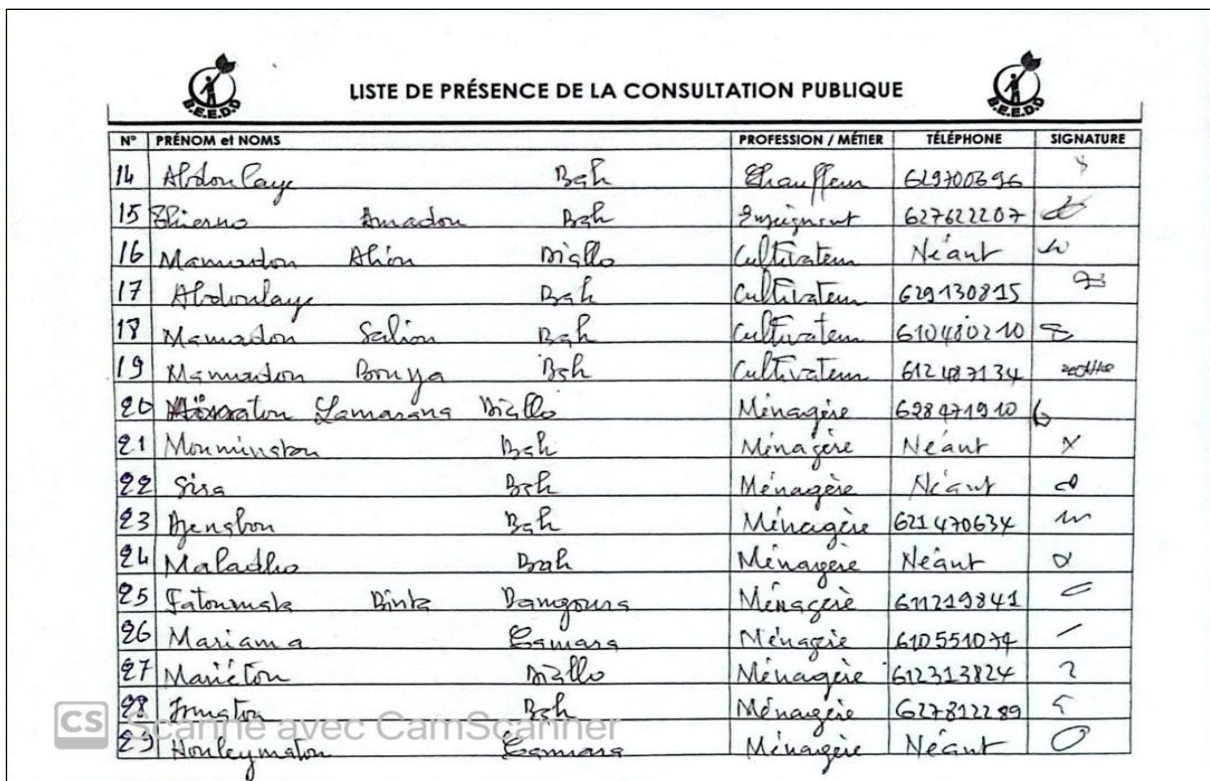 B.E.E.D.D LISTE DE PRÉSENCE DE LA CONSULTATION PUBLIQUE B.E.E.D.D
N° PRÉNOM et NOMS PROFESSION / MÉTIER TÉLÉPHONE SIGNATURE
14 Abdoulaye Bah Chauffeur 629700696
15 Thierno Amadou Bah Enseignant 627622207
16 Mamadou Aliou Diallo Cultivateur Néant
17 Abdoulaye Bah Cultivateur 629130815
18 Mamadou Saliou Bah Cultivateur 610480210
19 Mamadou Bouya Bah Cultivateur 612487134
20 Lamarana Diallo Ménagère 628471910
21 Mouminatou Bah Ménagère Néant
22 Sira Bah Ménagère Néant
23 Bah Ménagère 621470634
24 Maladho Bah Ménagère Néant
25 Fatoumata Binta Bangoura Ménagère 611219841
26 Mariama Camara Ménagère 610551074
27 Mariétou Diallo Ménagère 612313824
28 Bah Ménagère 627812289
29 Houleymatou Camara Ménagère Néant
CS Scanné avec CamScanner